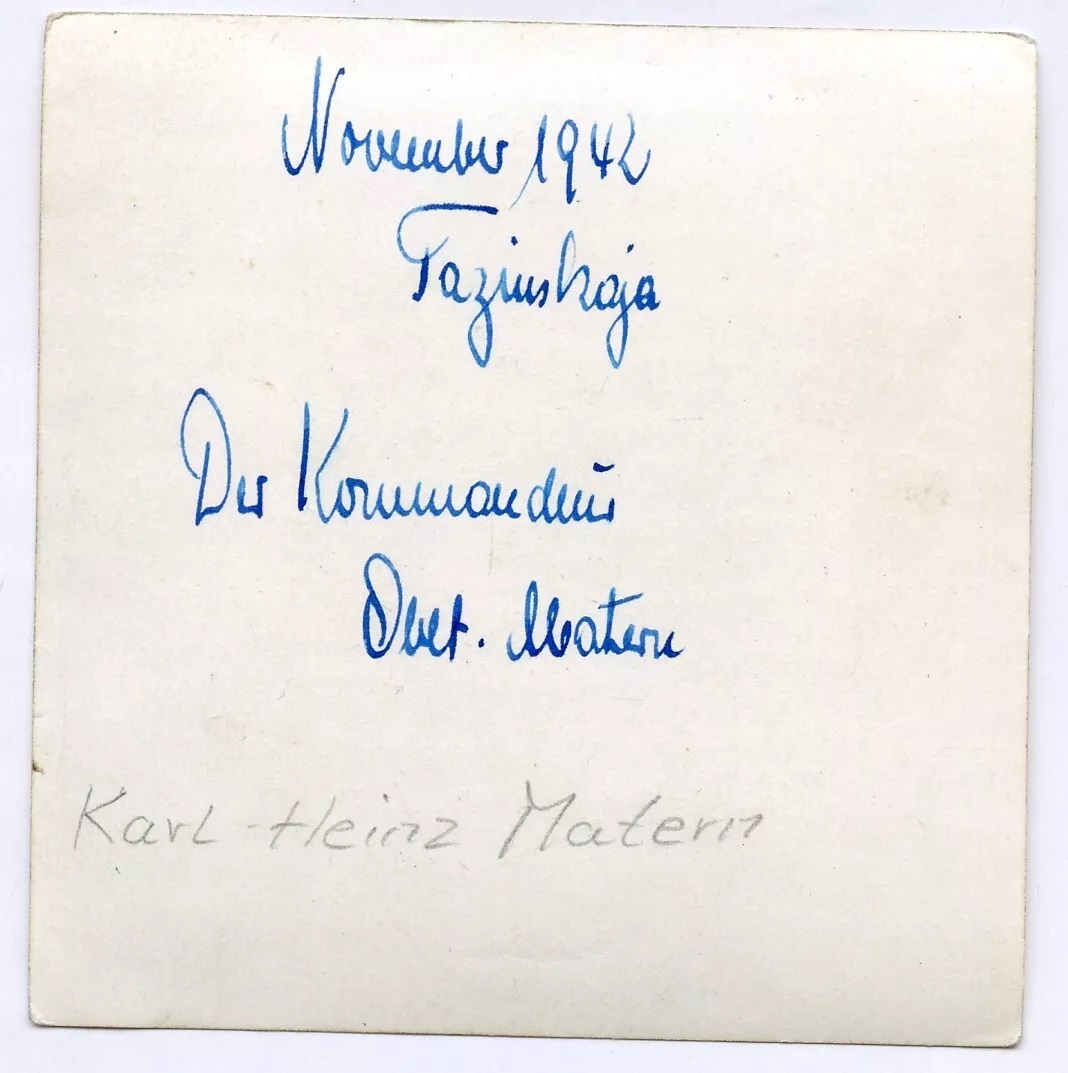 November 1942
Tazinskaja
Der Kommandeur
Oblt. Matern
Karl-Heinz Matern